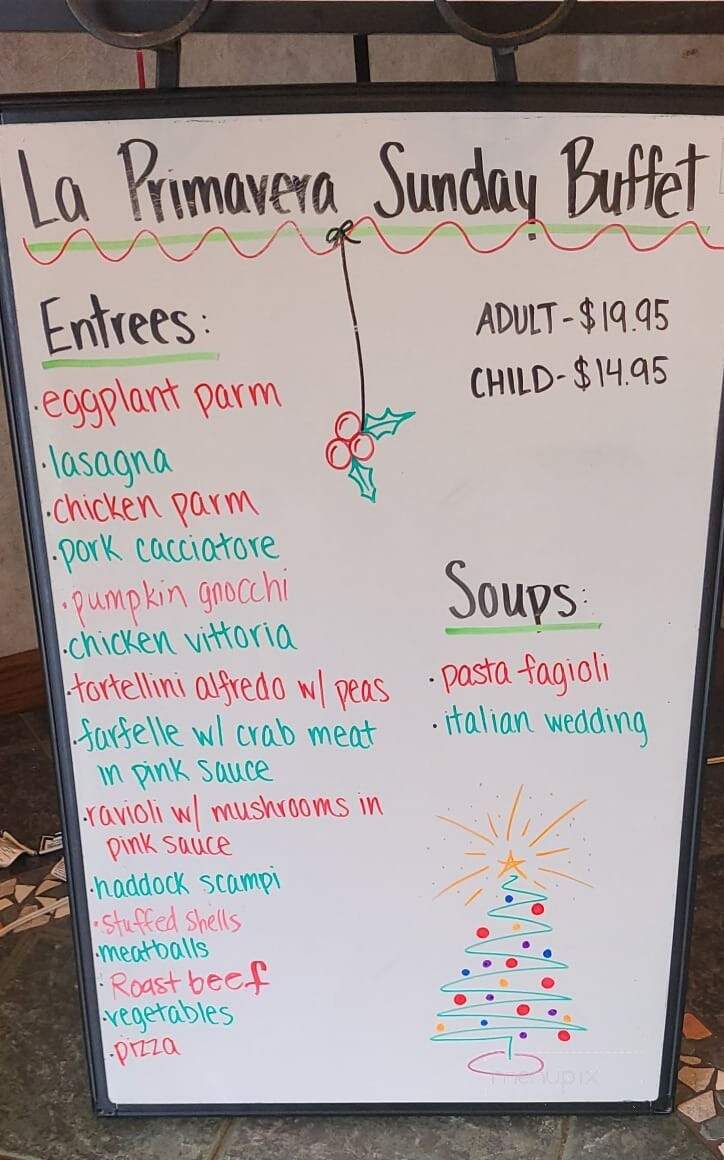 La Primavera Sunday Buffet
Entrees:
ADULT - $19.95
CHILD - $14.95
·eggplant parm
·lasagna
·chicken parm
·pork cacciatore
·pumpkin gnocchi
·chicken vittoria
·tortellini alfredo w/ peas
·farfelle w/ crab meat
in pink sauce
·ravioli w/ mushrooms in
pink sauce
·haddock scampi
·stuffed shells
·meatballs
·Roast beef
·vegetables
·pizza
Soups:
·pasta fagioli
·italian wedding
menupix